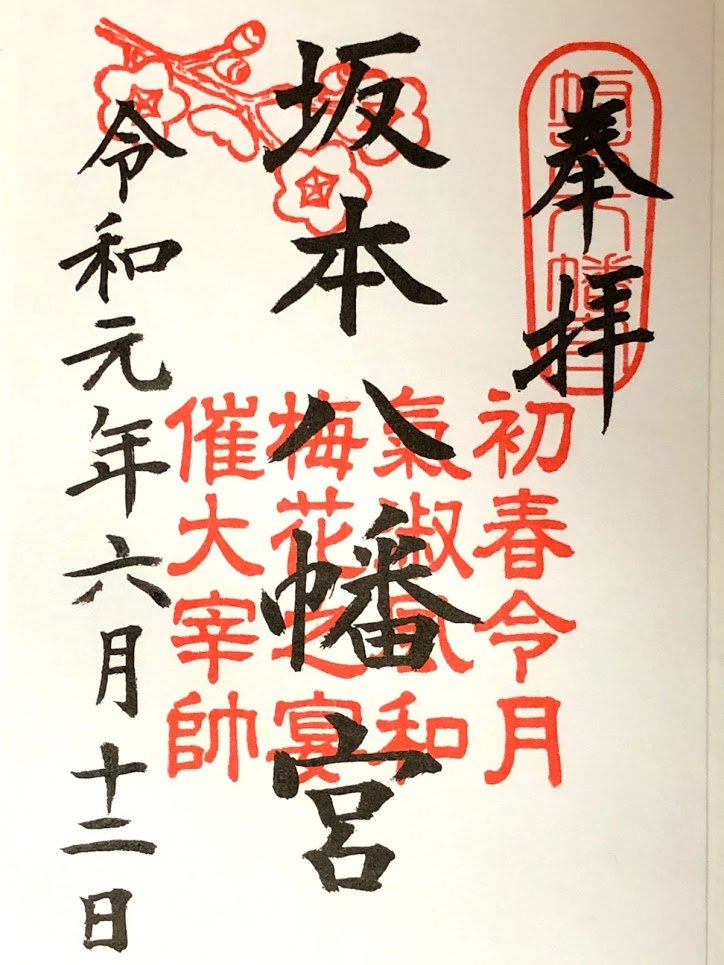 奉拝
初春令月
氣淑風和
梅花之宴
催大宰帥
坂本八幡宮
令和元年六月十二日